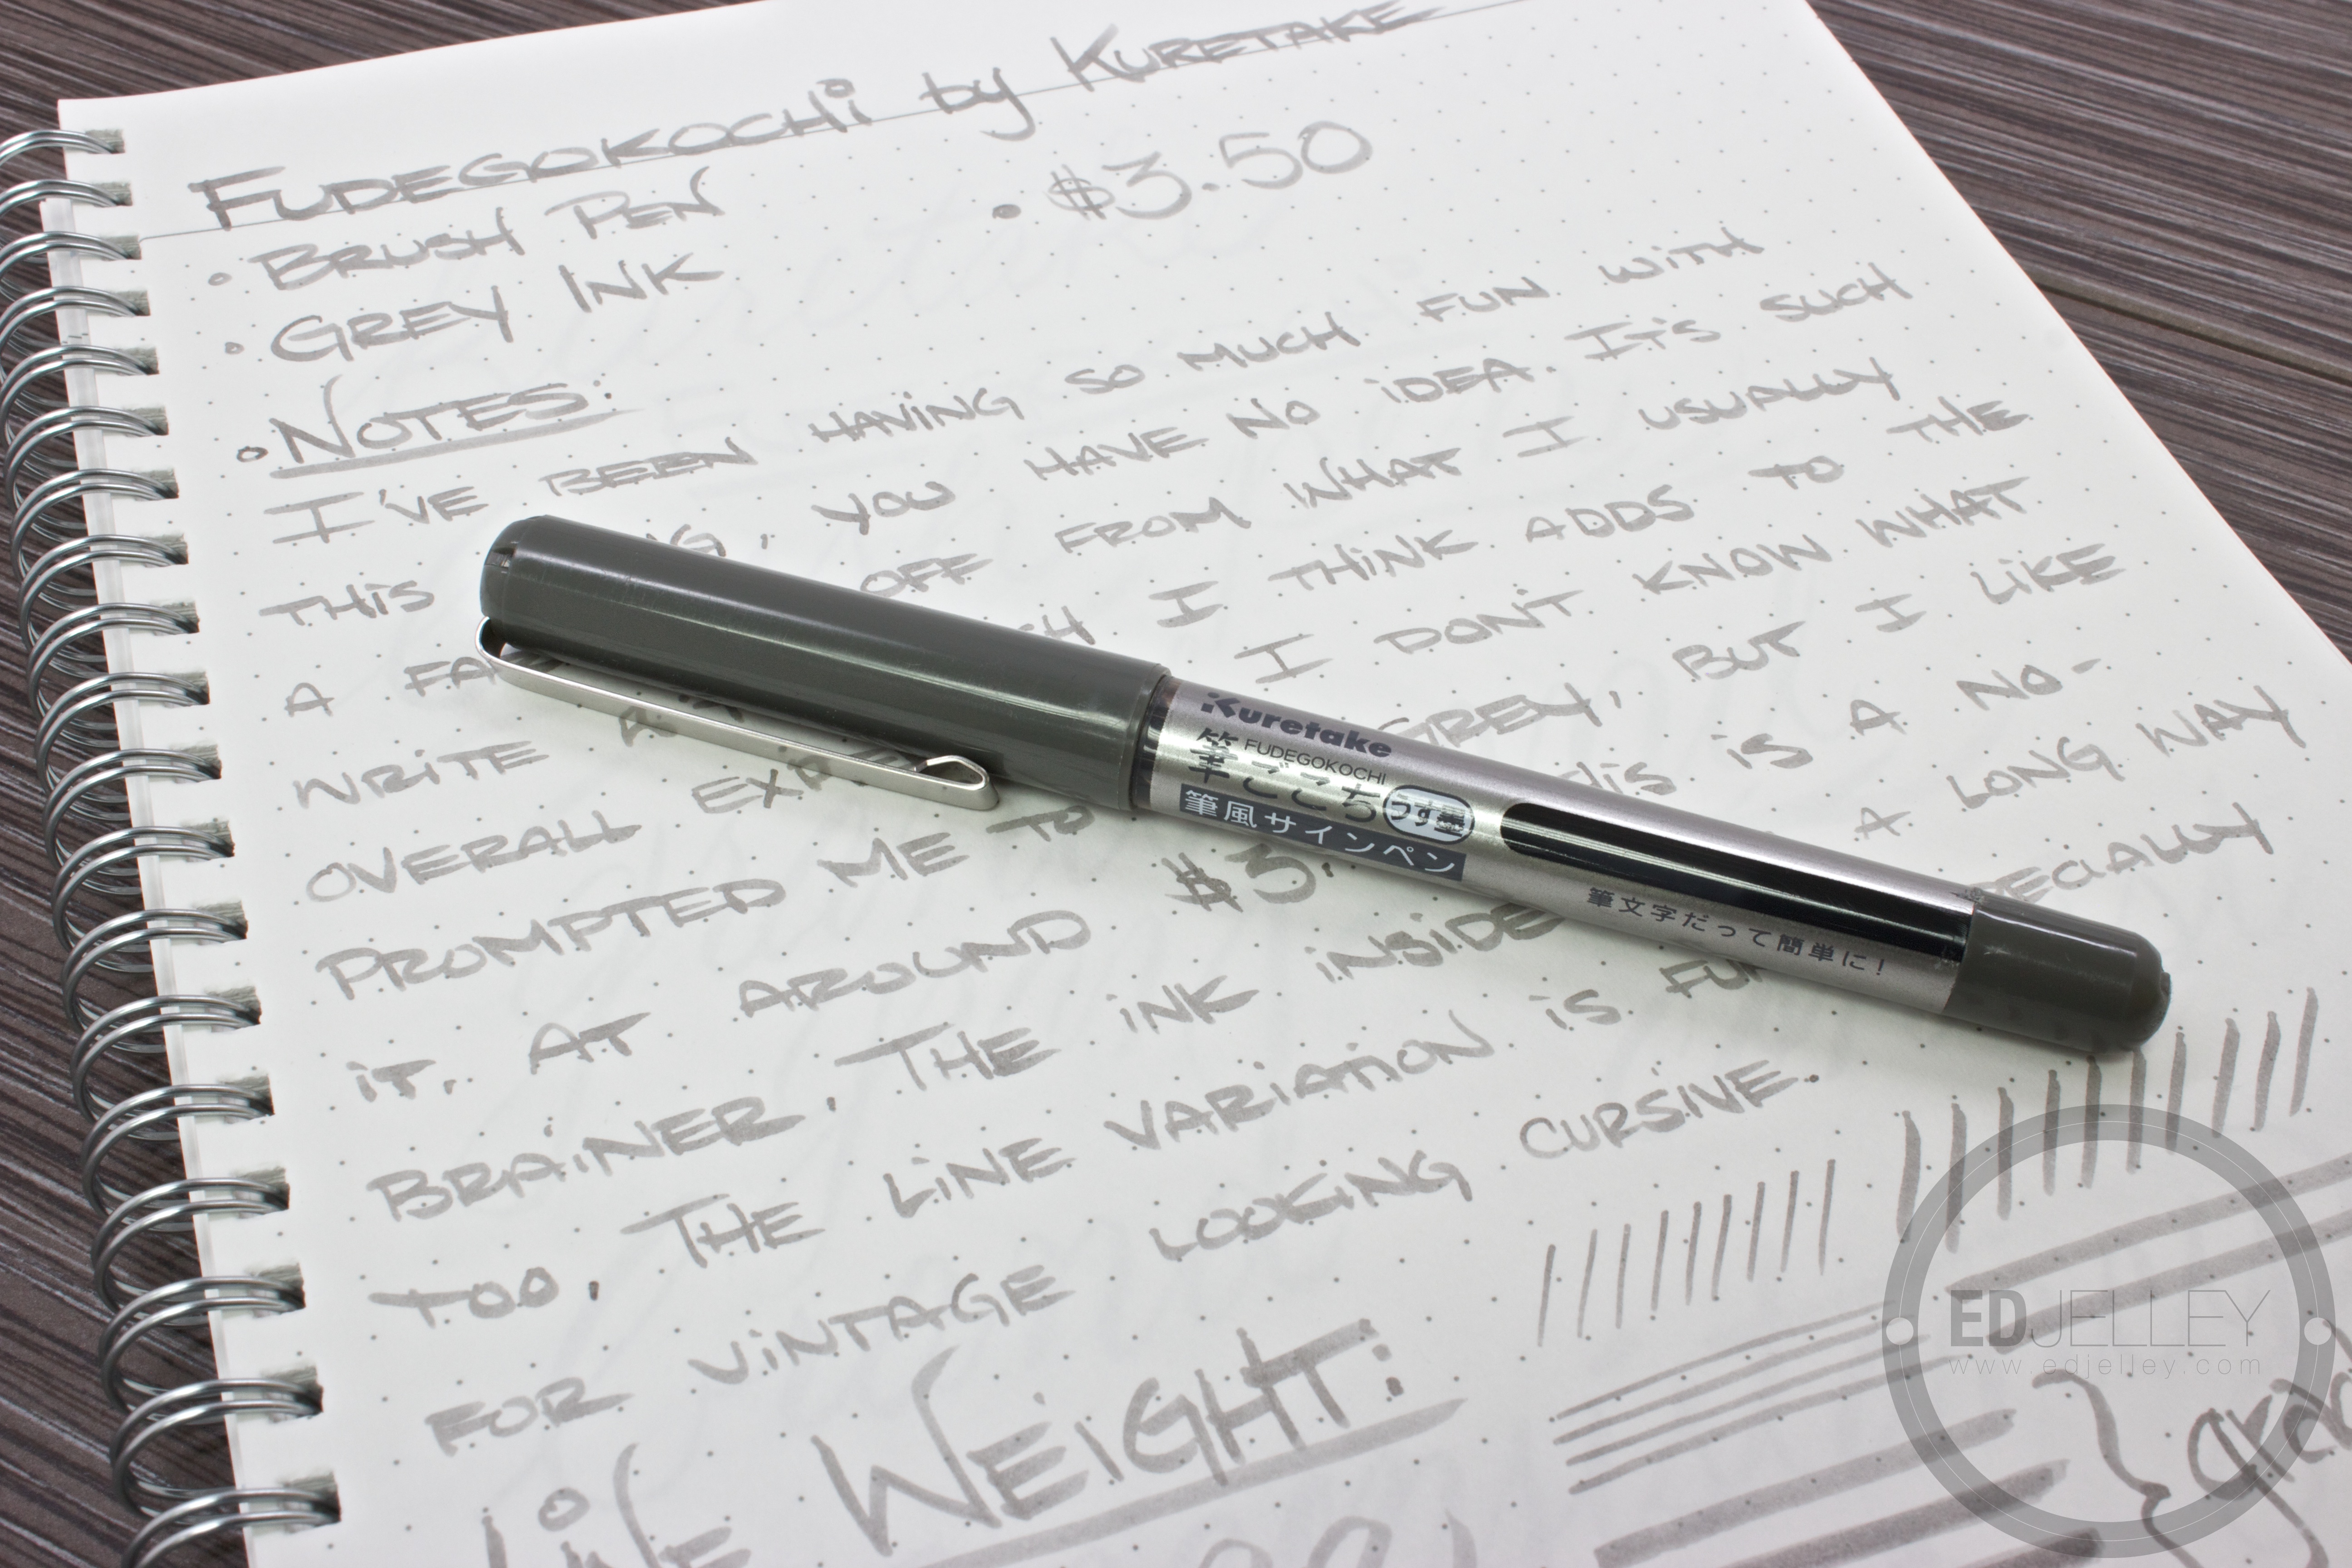 FUDEGOKOCHI by KURETAKE
• BRUSH PEN • $3.50
• GREY INK
• NOTES:
I'VE BEEN HAVING SO MUCH FUN WITH
THIS , YOU HAVE NO IDEA. IT'S SUCH
A OFF FROM WHAT I USUALLY
WRITE I THINK ADDS TO THE
OVERALL I DON'T KNOW WHAT
PROMPTED ME TO GREY, BUT I LIKE
IT. AT AROUND $3. THIS IS A NO-
BRAINER. THE INK INSIDE A LONG WAY
TOO. THE LINE VARIATION IS FUN ESPECIALLY
FOR VINTAGE LOOKING CURSIVE.
LINE WEIGHT:
Kuretake
FUDEGOKOCHI
筆ごこち うす墨
筆風サインペン
筆文字だって簡単に!
EDJELLEY
www.edjelley.com